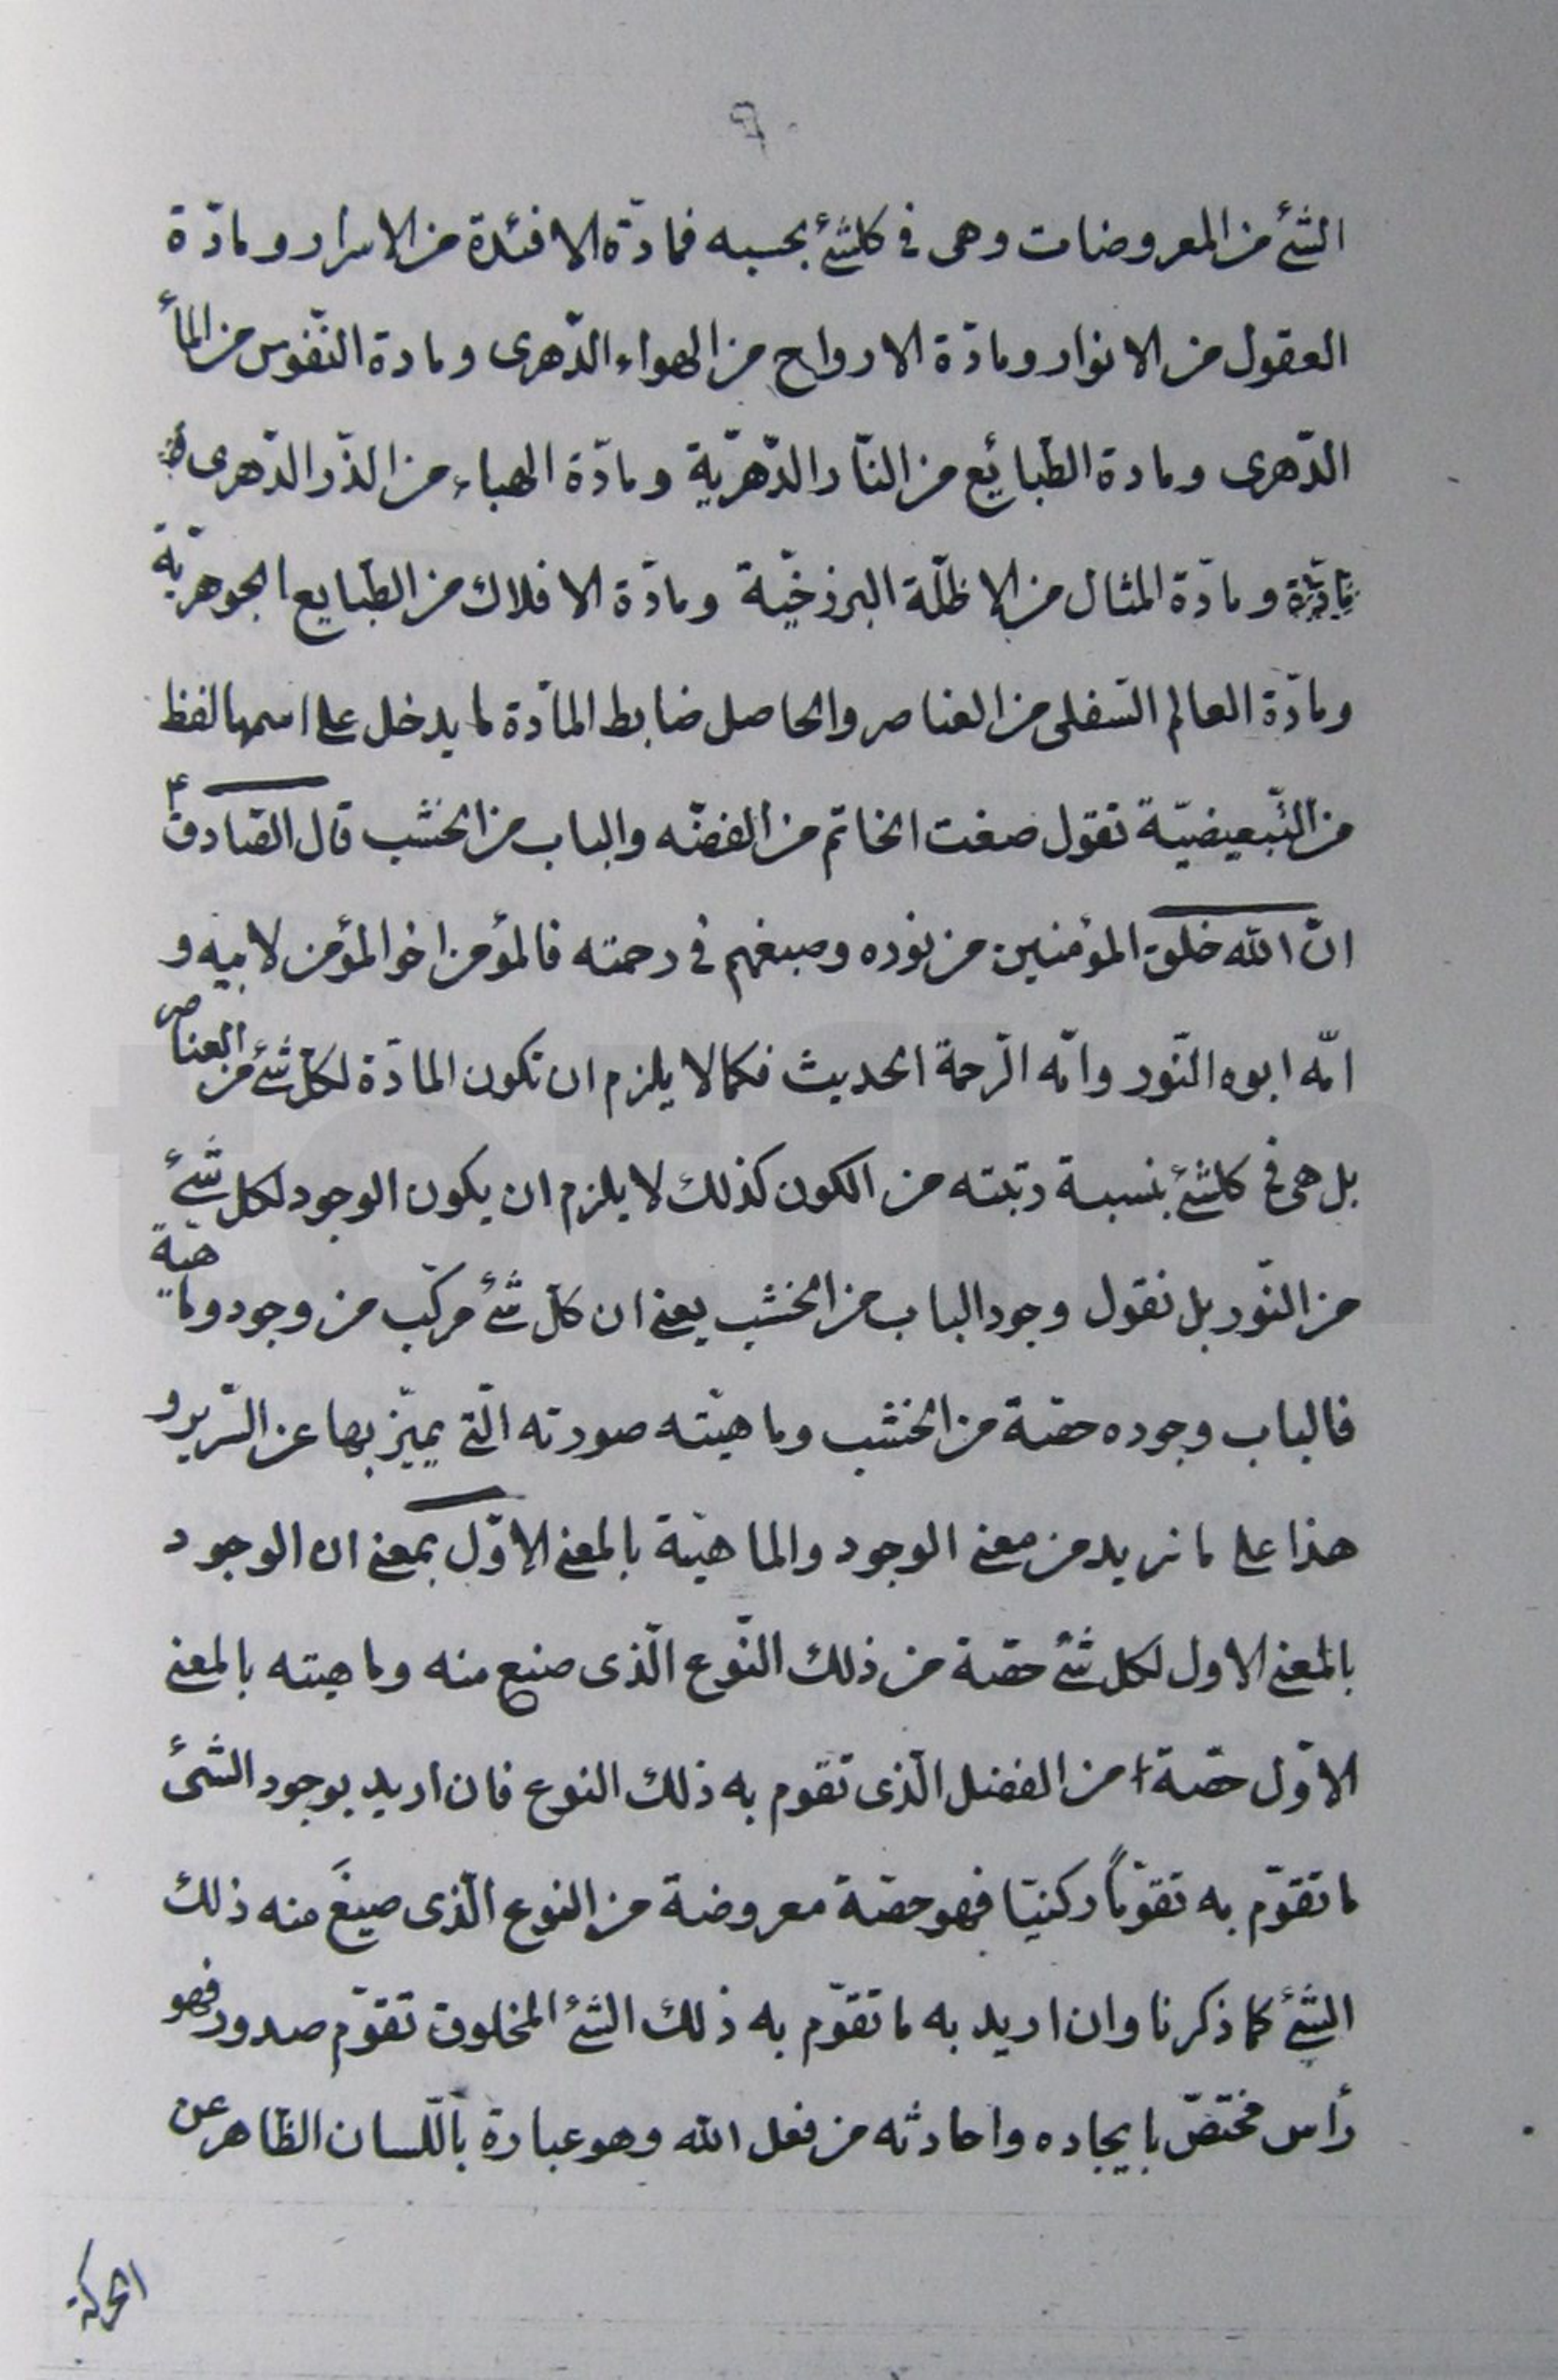 ٩٠
الشئ من المعروضات وهى فى كلشئ بحسبه فمادّة الافئدة من الاسرار ومادّة
العقول من الانوار ومادّة الارواح من الهواء الدّهرى ومادة النّفوس من المأ
الدّهرى ومادة الطّبائع من النّار الدّهريّة ومادّة الهباء من الذّر الدّهرى
ومادّة المثال من الاظلّة البرزخيّة ومادّة الافلاك من الطّبايع الجوهريّة
ومادّة العالم السّفلى من العناصر والحاصل ضابط المادّة ما يدخل على اسمها لفظ
من التّبعيضيّة تقول صغت الخاتم من الفضّه والباب من الخشب قال الصّادق ع
انّ الله خلق المؤمنين من نوره وصبغهم فى رحمته فالمؤمن اخو المؤمن لابيه و
امّه ابوه النّور وامّه الرّحمة الحديث فكما لا يلزم ان تكون المادّة لكلّ شئ من العناصر
بل هى فى كلشئ بنسبة رتبته من الكون كذلك لا يلزم ان يكون الوجود لكل شئ
من النّور بل نقول وجود الباب من الخشب يعنى ان كلّ شئ مركّب من وجود وماهيّة
فالباب وجوده حصّة من الخشب وماهيّته صورته الّتى يميّز بها عن السّرير و
هذا على ما نريد من معنى الوجود والماهيّة بالمعنى الاوّل بمعنى ان الوجود
بالمعنى الاول لكل شئ حصّة من ذلك النّوع الّذى صنع منه وماهيته بالمعنى
الاوّل حصّة من الفصل الّذى تقوم به ذلك النوع فان اريد بوجود الشئ
ما تقوّم به تقوّماً ركنيّا فهو حصّة معروضة من النوع الّذى صيغَ منه ذلك
الشئ كما ذكرنا وان اريد به ما تقوّم به ذلك الشئ المخلوق تقوّم صدور فهو
رأس مختصّ بايجاده واحادثه من فعل الله وهو عبارة باللّسان الظّاهر عن
الحركة